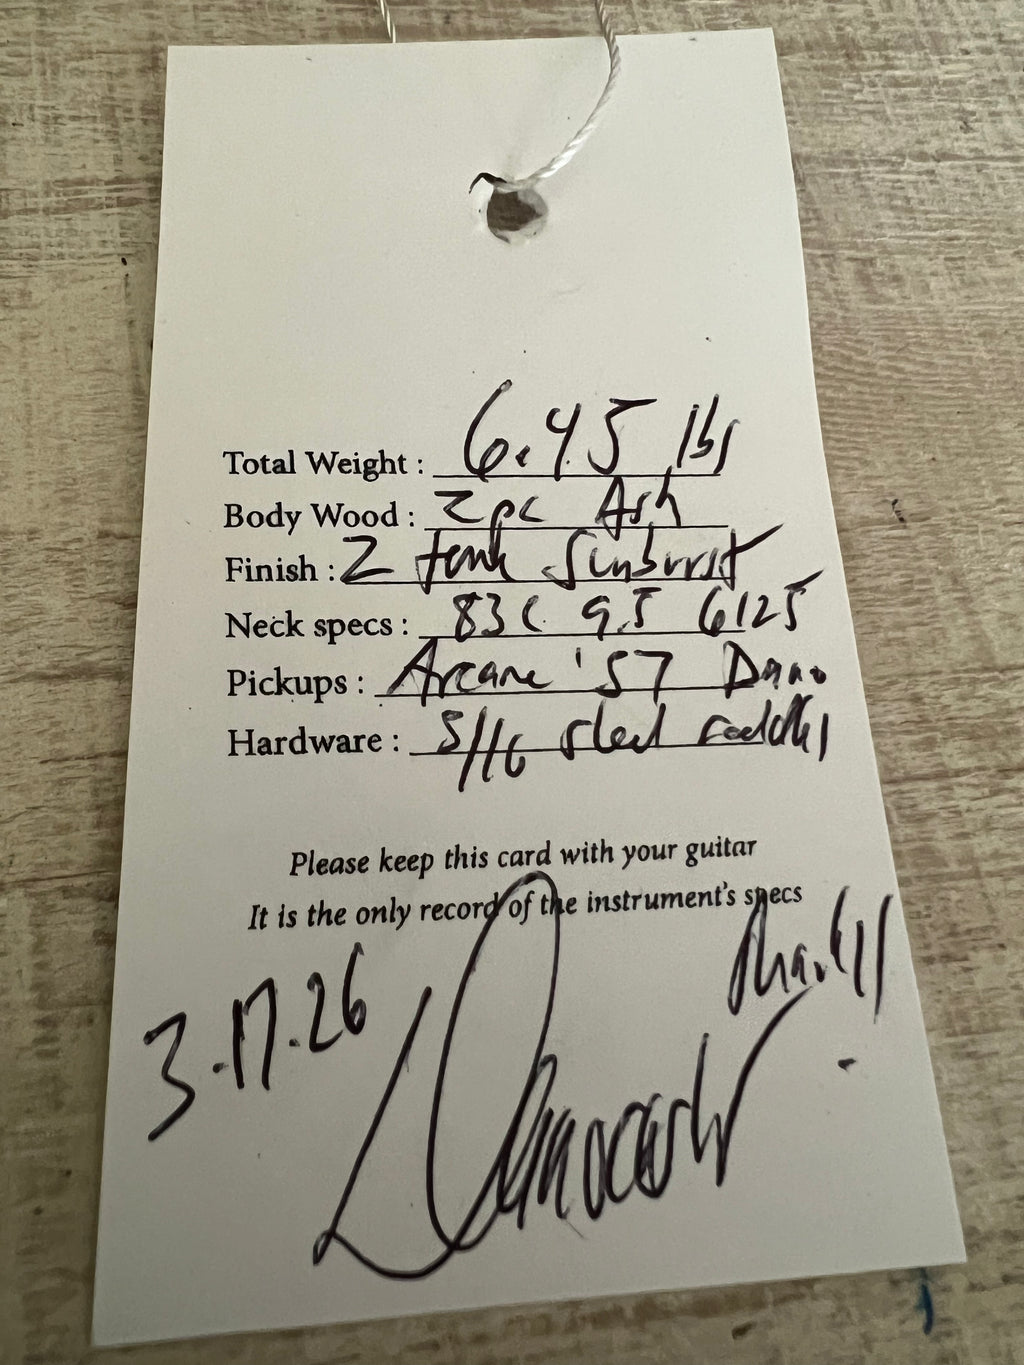 Total Weight : 6.45 lbs
Body Wood : 2 pc Ash
Finish : 2 Tone Sunburst
Neck specs : 83 C 9.5 6125
Pickups : Arcane '57 Dano
Hardware : 5/16 steel saddles
Please keep this card with your guitar
It is the only record of the instrument's specs
3.17.26